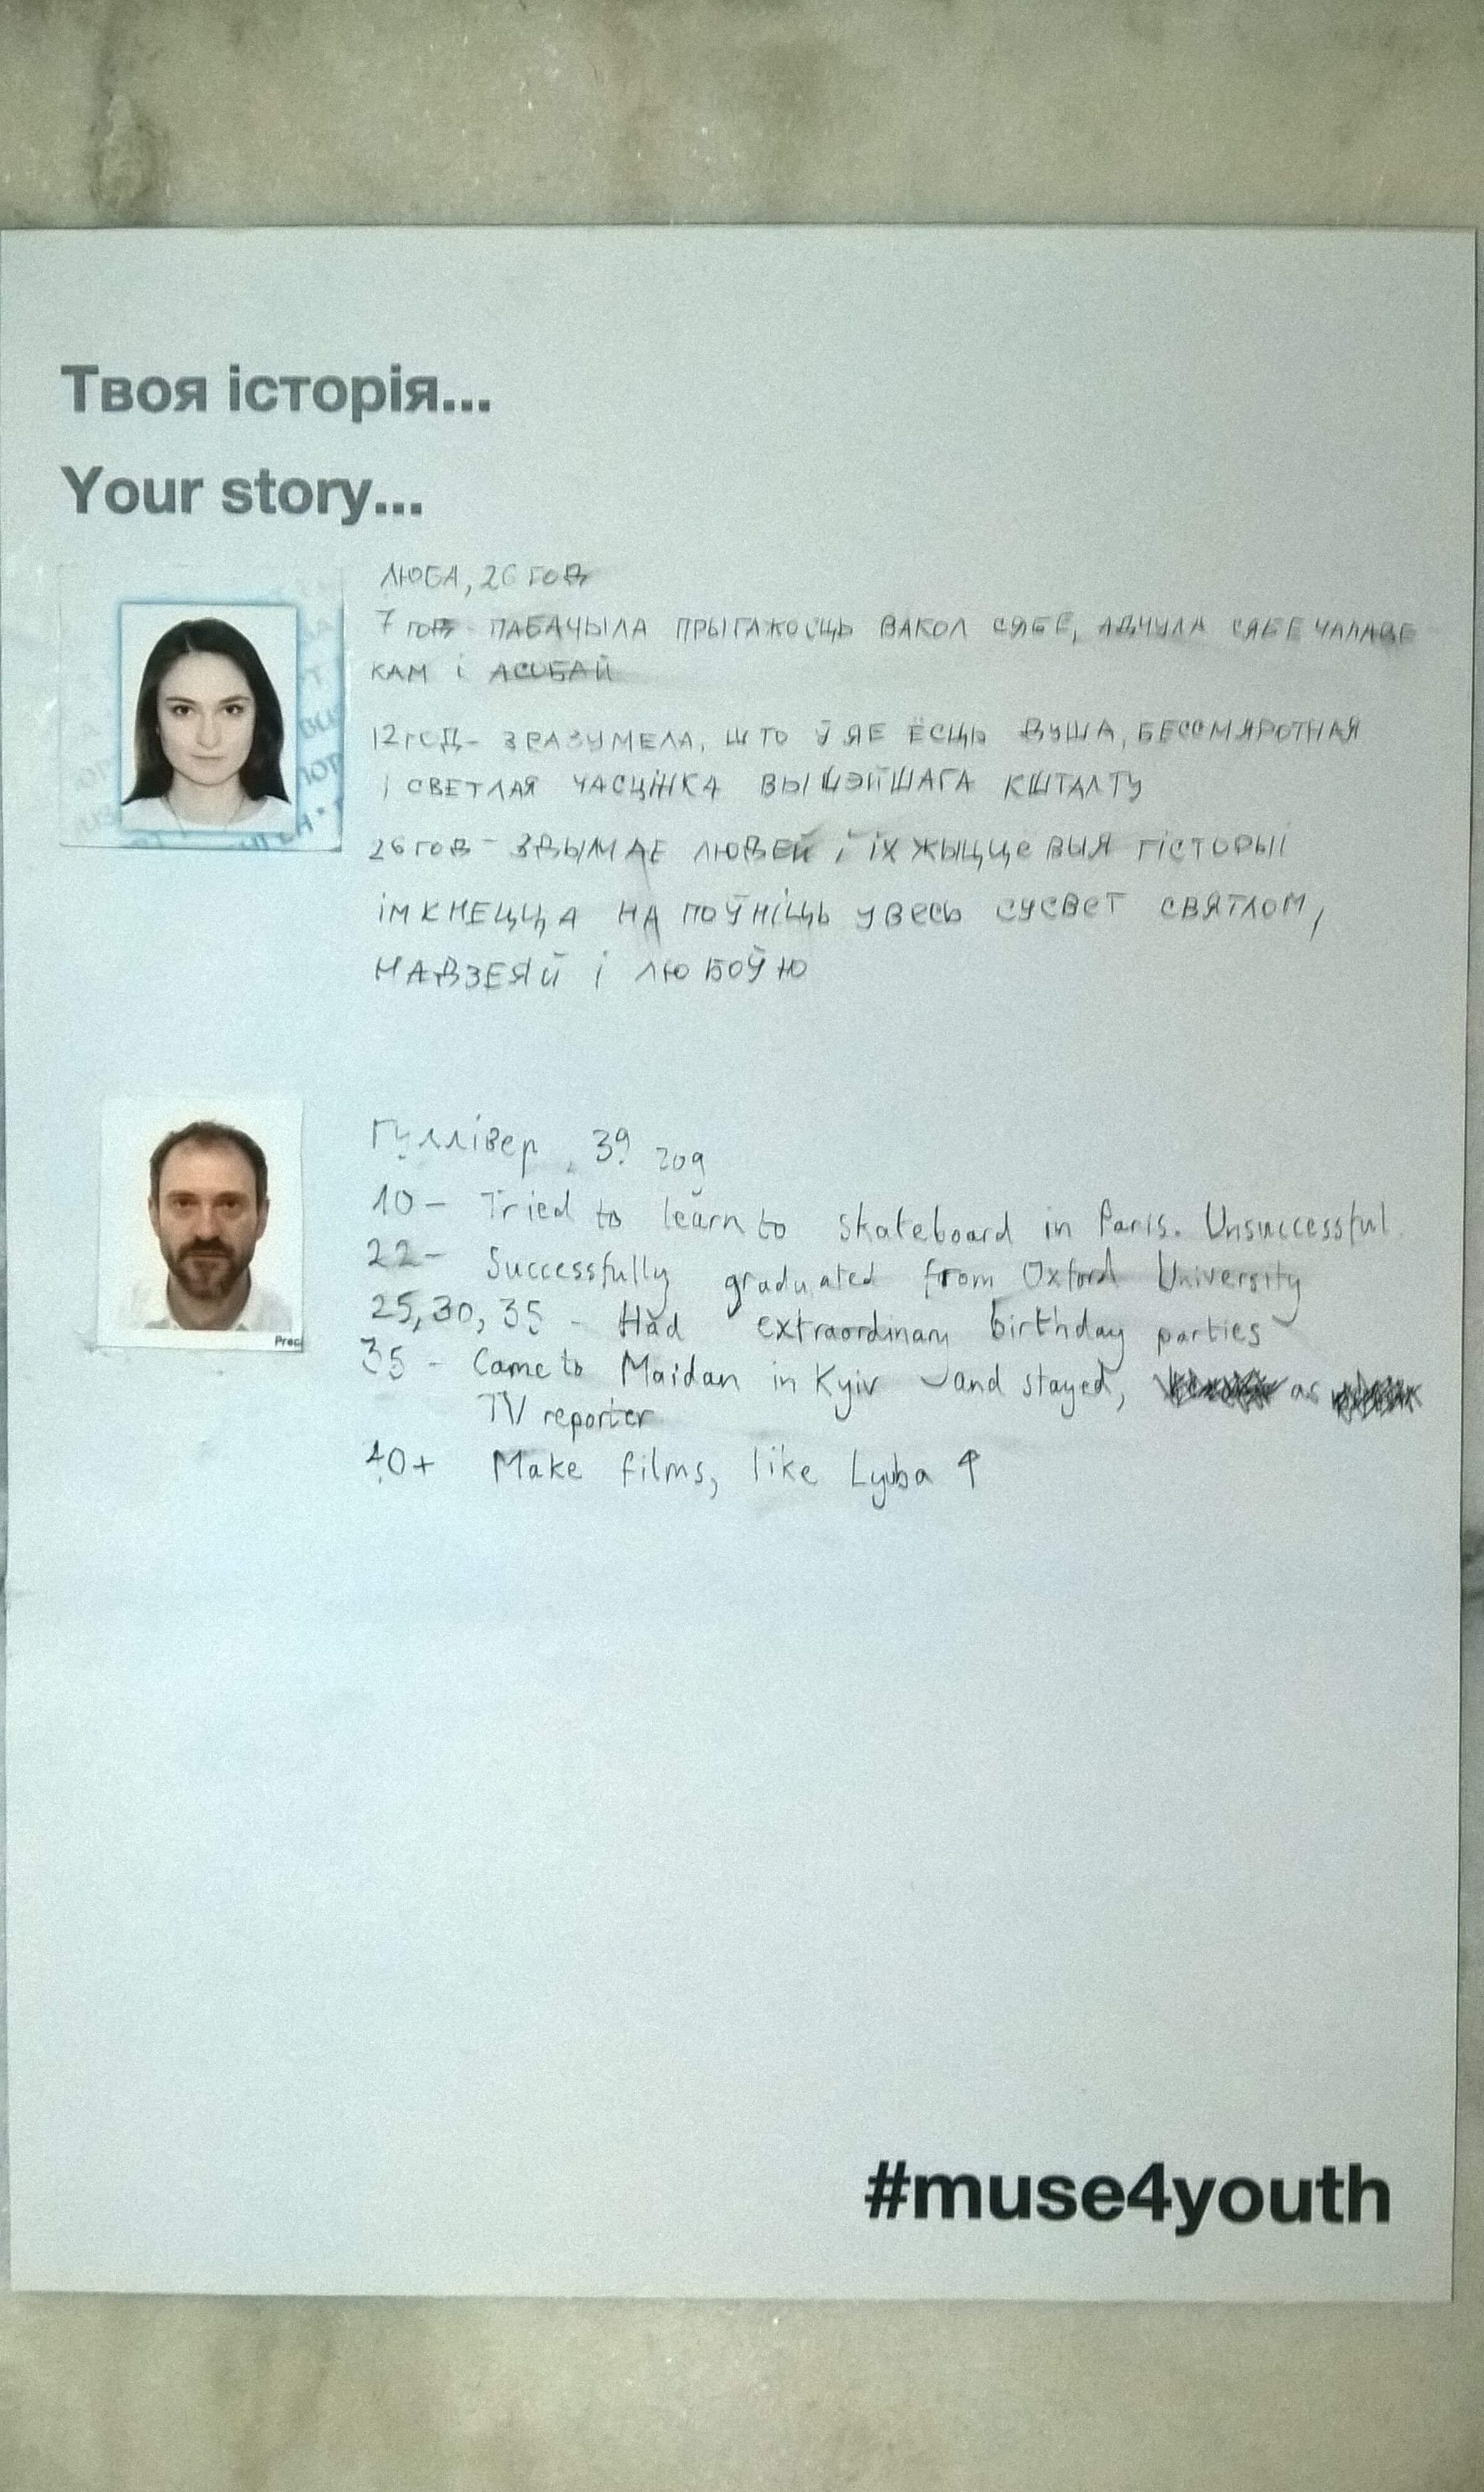 Твоя історія...
Your story...
ЛЮБА, 26 ГОД
7 ГОД - ПАБАЧЫЛА ПРЫГАЖОСЦЬ ВАКОЛ СЯБЕ, АДЧУЛА СЯБЕ ЧАЛАВЕ
КАМ І АСОБАЙ
12 ГОД - ЗРАЗУМЕЛА, ШТО Ў ЯЕ ЁСЦЬ ДУША, БЕССМЯРОТНАЯ
І СВЕТЛАЯ ЧАСЦІНКА ВЫШЭЙШАГА КШТАЛТУ
26 ГОД - ЗДЫМАЕ ЛЮДЕЙ І ІХ ЖЫЦЦЕВЫЯ ГІСТОРЫІ
ІМКНЕЦЦА НАПОЎНІЦЬ УВЕСЬ СУСВЕТ СВЯТЛОМ,
НАДЗЕЯЙ І ЛЮБОЎЮ
Гуллівер, 39 год
10 - Tried to learn to skateboard in Paris. Unsuccessful.
22 - Successfully graduated from Oxford University
25, 30, 35 - Had extraordinary birthday parties
35 - Came to Maidan in Kyiv and stayed, as
TV reporter
40+ Make films, like Lyuba ↑
Prec
#muse4youth